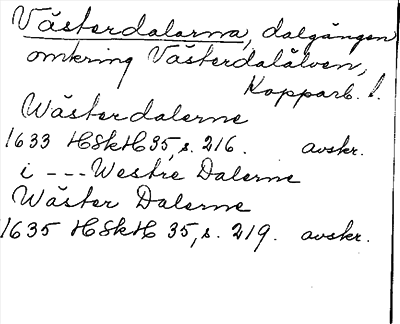 Västerdalarna, dalgången
omkring Västerdalälven,
Kopparb. l.
Wästerdalerne
1633 HSkH 35, s. 216. avskr.
i --- Westre Dalerne
Wäster Dalerne
1635 HSkH 35, s. 219. avskr.